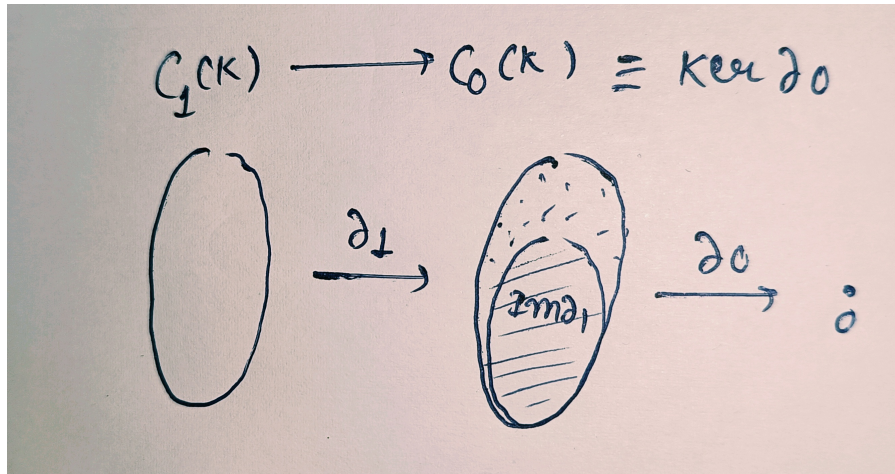 C₁(K) ⟶ C₀(K) ≡ Ker ∂0
∂1 ⟶
Im∂₁
∂0 ⟶